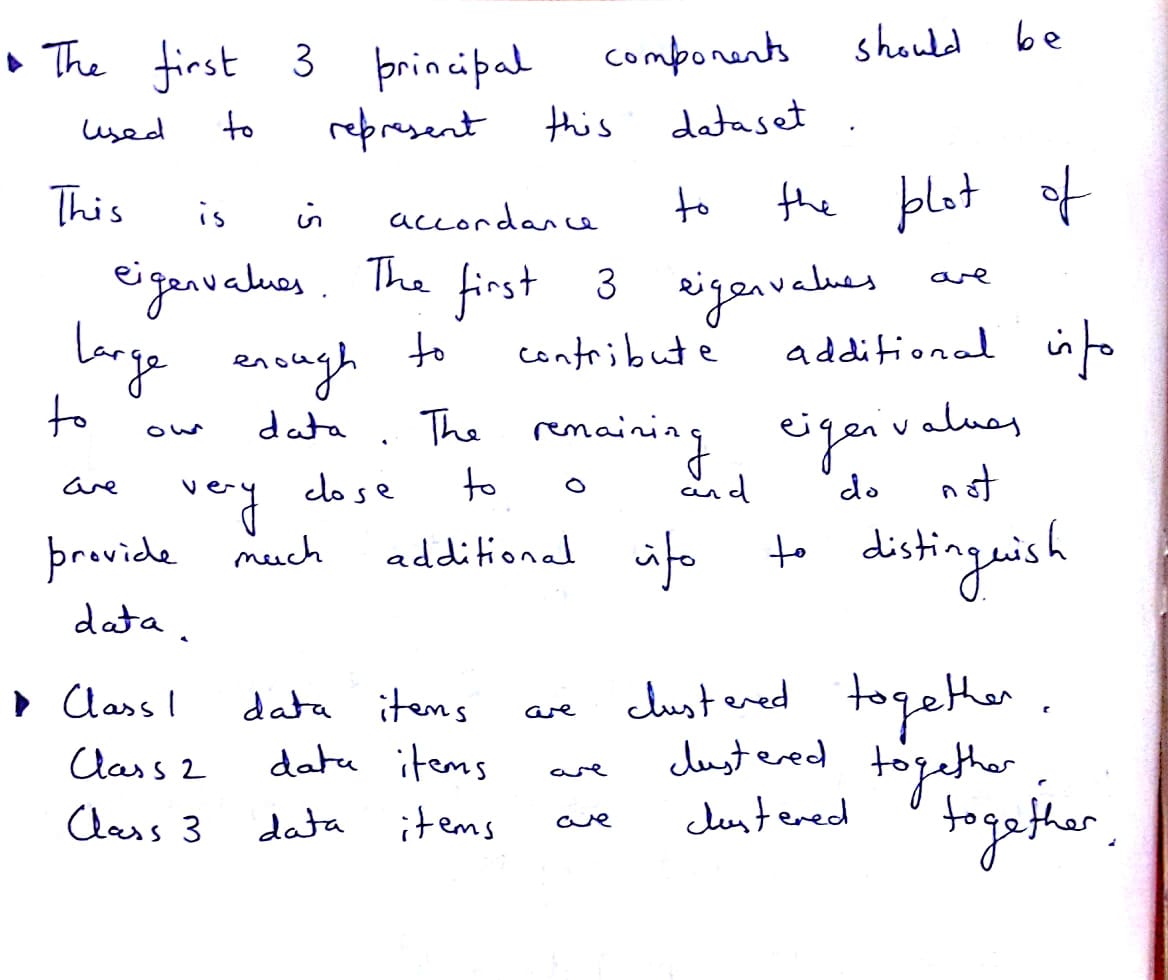 The first 3 principal components should be
used to represent this dataset.
This is in accordance to the plot of
eigenvalues. The first 3 eigenvalues are
large enough to contribute additional info
to our data. The remaining eigenvalues
are very close to 0 and do not
provide much additional info to distinguish
data.
Class 1 data items are clustered together.
Class 2 data items are clustered together.
Class 3 data items are clustered together.